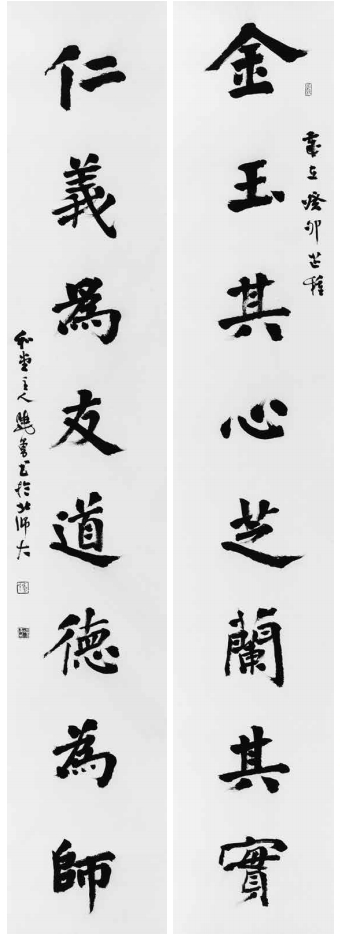 金玉其心芝蘭其實
歲在癸卯芒種
仁義為友道德為師
和堂主人曉勇書於北師大